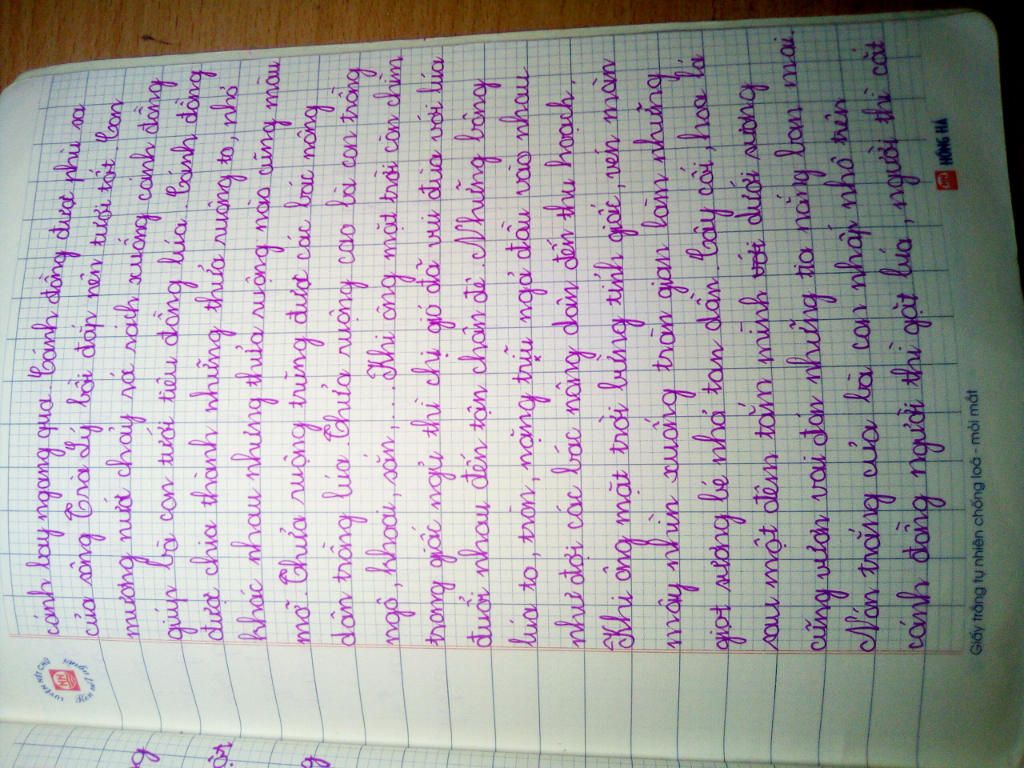 cánh bay ngang qua. Cánh đồng được phù sa
của sông Trà Lý bồi đắp nên tươi tốt. Con
mương nước chảy rả rách xuống cánh đồng
giúp bà con tưới tiêu đồng lúa. Cánh đồng
được chia thành những thửa ruộng to, nhỏ
khác nhau nhưng thửa ruộng nào cũng màu
mỡ. Thửa ruộng trũng được các bác nông
dân trồng lúa. Thửa ruộng cao bà con trồng
ngô, khoai, sắn,.... Khi ông mặt trời còn chìm
trong giấc ngủ thì chị gió đã vui đùa với lúa
đuổi nhau đến tận chân đê. Những bông
lúa to, tròn, nặng trĩu ngả đầu vào nhau
như đợi các bác nông dân đến thu hoạch.
Khi ông mặt trời bừng tỉnh giấc, vén màn
mây nhìn xuống trần gian làm những
giọt sương bé nhỏ tan dần. Cây cối, hoa lá
sau một đêm tắm mình với dưới sương
cũng vươn vai đón những tia nắng ban mai.
Nón trắng của bà con nhấp nhô trên
cánh đồng người thì gặt lúa, người thì cắt
Giấy trắng tự nhiên chống loá - mỏi mắt
HỒNG HÀ
LUYỆN NÉT CHỮ
Rèn nết người
HH